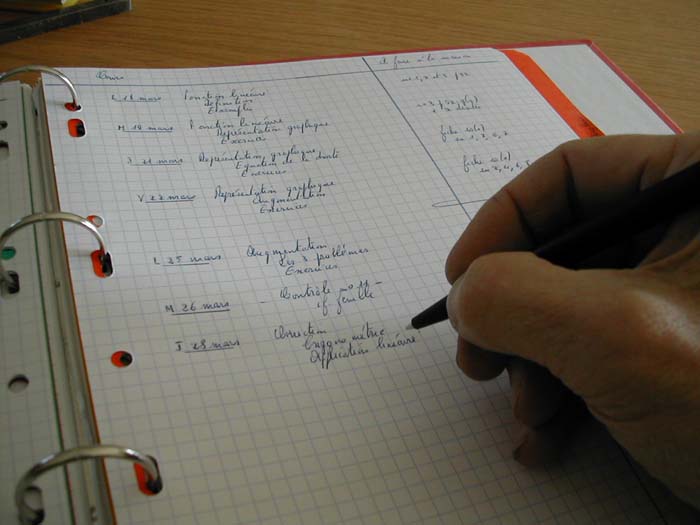 Cours
à faire à la maison
L 18 mars Fonction linéaire
définition
Exemples
M 19 mars Fonction linéaire
Représentation graphique
Exercices
J 21 mars Représentation graphique
Equation de la droite
Exercices
fiche
V 22 mars Représentation graphique
Augmentation
Exercices
fiche
L 25 mars Augmentation
Les 3 problèmes
Exercices
M 26 mars - Contrôle no 11 -
cf feuille
J 28 mars Correction
Trigonométrie
Application linéaire